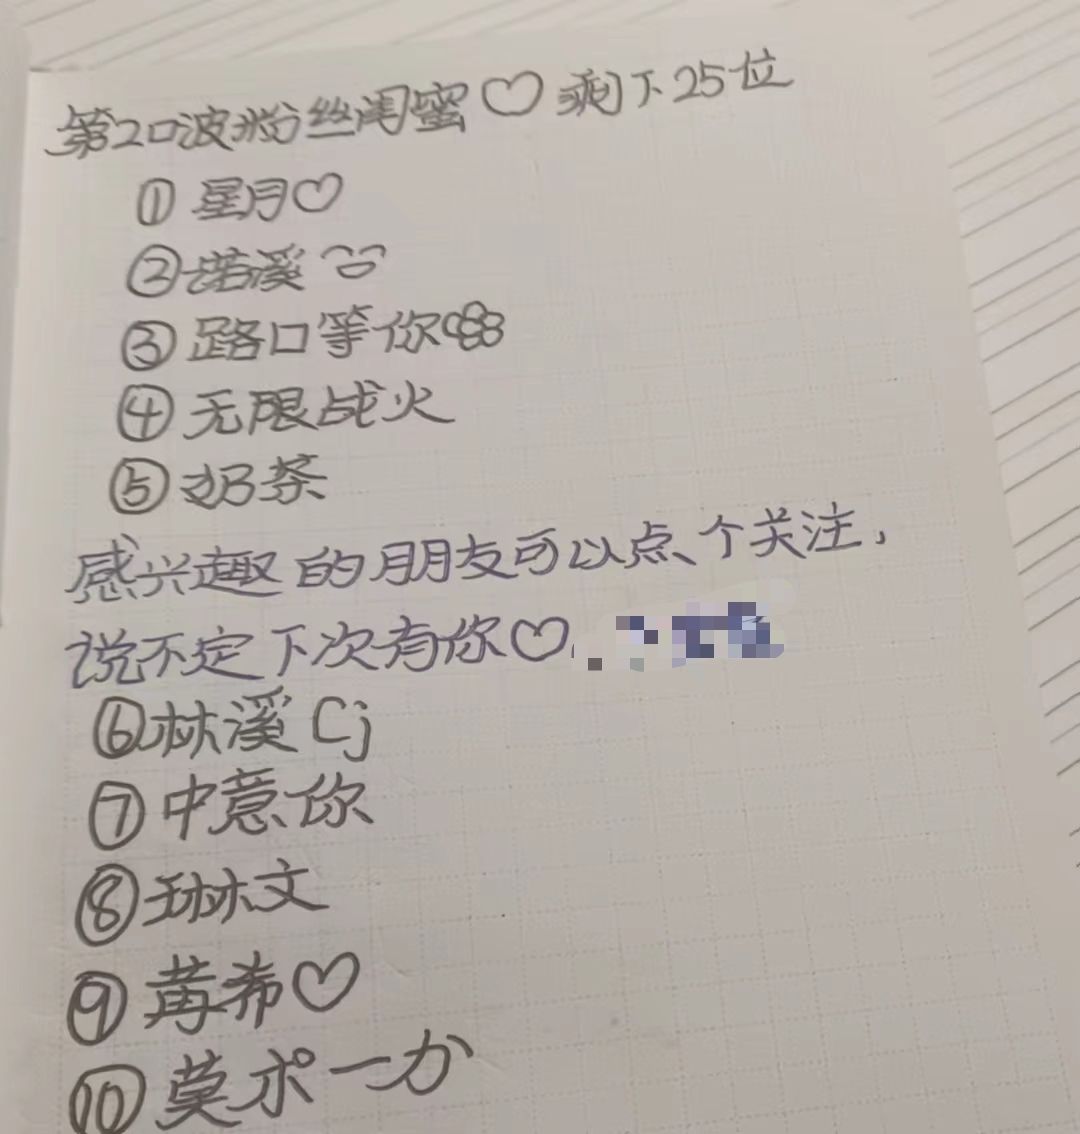 第20波粉丝闺蜜♡剩下25位
①星月♡
②诺溪
③路口等你
④无限战火
⑤奶茶
感兴趣的朋友可以点个关注,
说不定下次有你♡.
⑥林溪Cj
⑦中意你
⑧琳文
⑨苒希♡
⑩莫ポ一カ